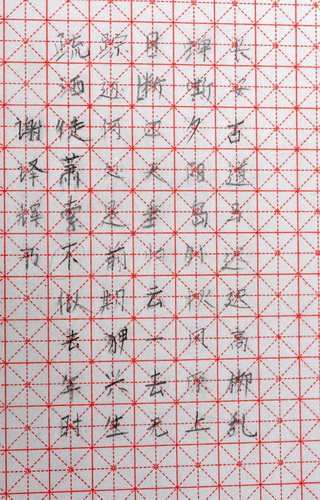 长安古道马迟迟高柳乱
蝉嘶夕阳岛外秋风原上
目断四天垂归云一去无
踪迹何处是前期狎兴生
疏酒徒萧索不似去年时
谢译辉书